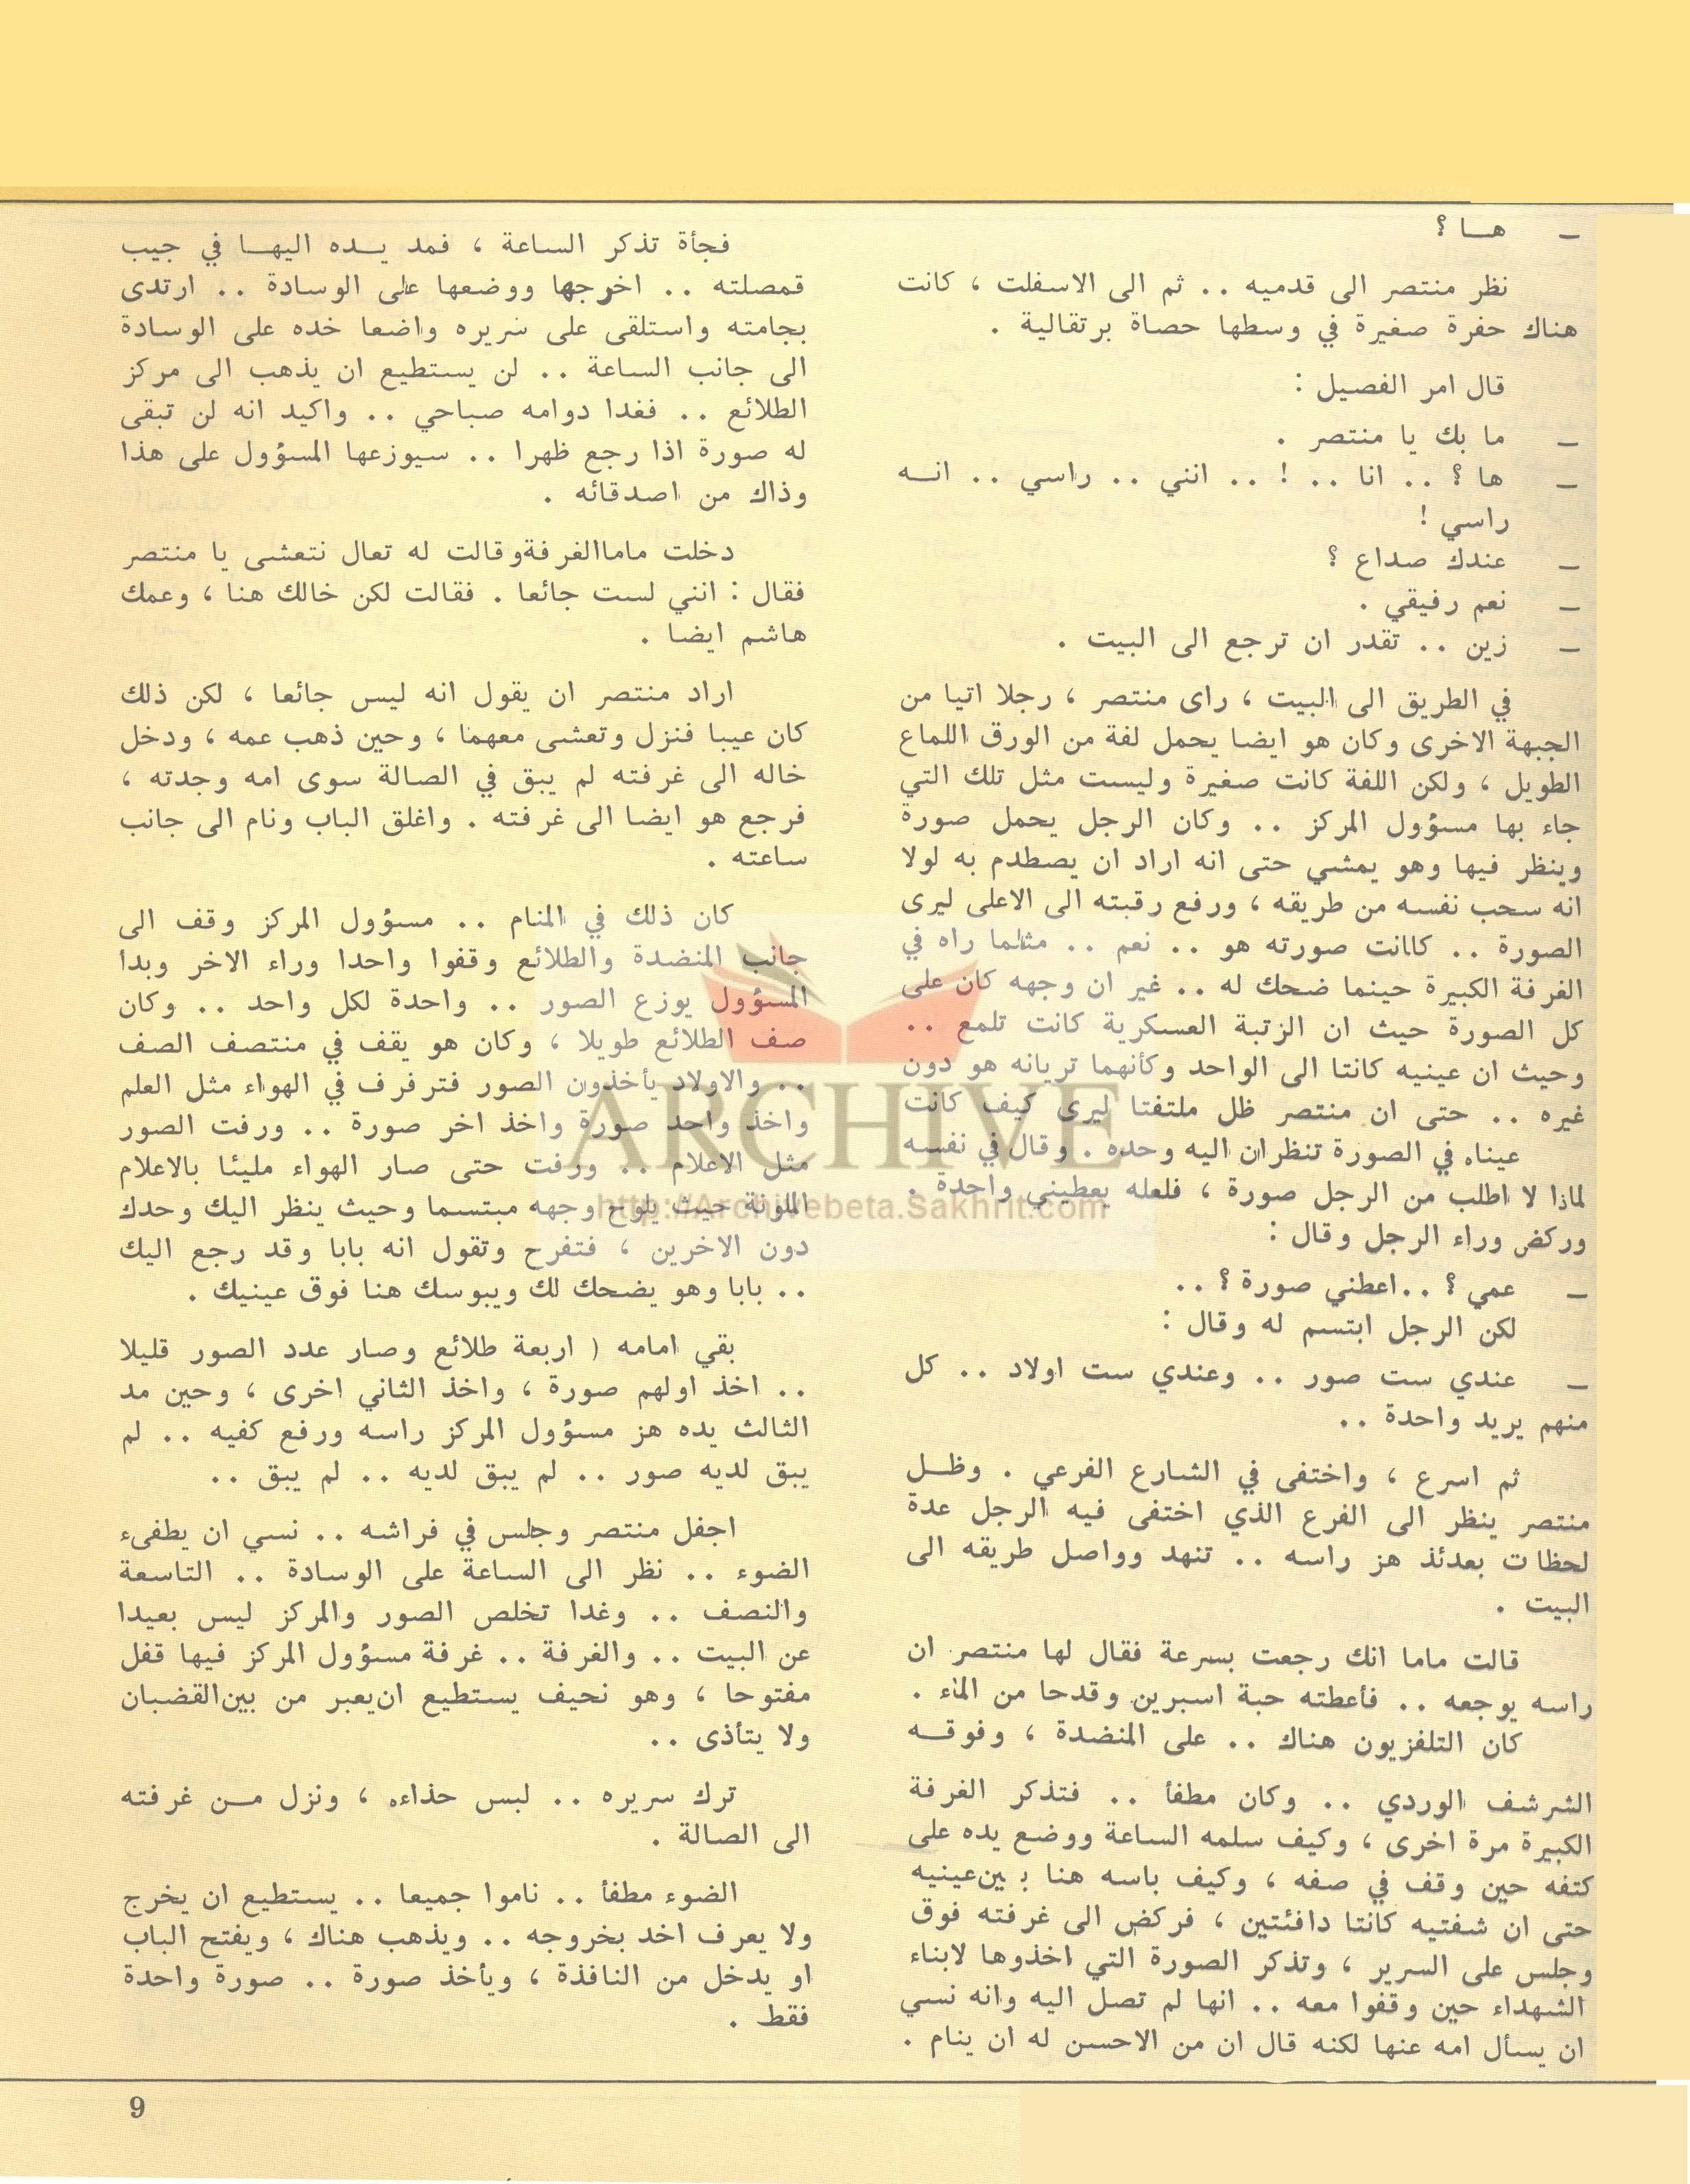 ـ هـا ؟
نظر منتصر الى قدميه .. ثم الى الاسفلت ، كانت
هناك حفرة صغيرة في وسطها حصاة برتقالية .
قال امر الفصيل :
ـ ما بك يا منتصر .
ـ ها ؟ .. انا .. ! .. انني .. راسي .. انـه
راسي !
ـ عندك صداع ؟
ـ نعم رفيقي .
ـ زين .. تقدر ان ترجع الى البيت .
في الطريق الى البيت ، راى منتصر ، رجلا اتيا من
الجبهة الاخرى وكان هو ايضا يحمل لفة من الورق اللماع
الطويل ، ولكن اللفة كانت صغيرة وليست مثل تلك التي
جاء بها مسؤول المركز .. وكان الرجل يحمل صورة
وينظر فيها وهو يمشي حتى انه اراد ان يصطدم به لولا
انه سحب نفسه من طريقه ، ورفع رقبته الى الاعلى ليرى
الصورة .. كاانت صورته هو .. نعم .. مثلما راه في
الغرفة الكبيرة حينما ضحك له .. غير ان وجهه كان على
كل الصورة حيث ان الزتبة العسكرية كانت تلمع ..
وحيث ان عينيه كانتا الى الواحد وكأنهما تريانه هو دون
غيره .. حتى ان منتصر ظل ملتفتا ليرى كيف كانت
عيناه في الصورة تنظران اليه وحده . وقال في نفسه
لماذا لا اطلب من الرجل صورة ، فلعله يعطيني واحدة .
وركض وراء الرجل وقال :
ـ عمي ؟ ..اعطني صورة ؟ ..
لكن الرجل ابتسم له وقال :
ـ عندي ست صور .. وعندي ست اولاد .. كل
منهم يريد واحدة ..
ثم اسرع ، واختفى في الشارع الفرعي . وظـل
منتصر ينظر الى الفرع الذي اختفى فيه الرجل عدة
لحظات بعدئذ هز راسه .. تنهد وواصل طريقه الى
البيت .
قالت ماما انك رجعت بسرعة فقال لها منتصر ان
راسه يوجعه .. فأعطته حبة اسبرين وقدحا من الماء .
كان التلفزيون هناك .. على المنضدة ، وفوقـه
الشرشف الوردي .. وكان مطفأ .. فتذكر الغرفة
الكبيرة مرة اخرى ، وكيف سلمه الساعة ووضع يده على
كتفه حين وقف في صفه ، وكيف باسه هنا بين عينيه
حتى ان شفتيه كانتا دافئتين ، فركض الى غرفته فوق
وجلس على السرير ، وتذكر الصورة التي اخذوها لابناء
الشهداء حين وقفوا معه .. انها لم تصل اليه وانه نسي
ان يسأل امه عنها لكنه قال ان من الاحسن له ان ينام .
فجأة تذكر الساعة ، فمد يـده اليهـا في جيب
قمصلته .. اخرجها ووضعها على الوسادة .. ارتدى
بجامته واستلقى على سريره واضعا خده على الوسادة
الى جانب الساعة .. لن يستطيع ان يذهب الى مركز
الطلائع .. فغدا دوامه صباحي .. واكيد انه لن تبقى
له صورة اذا رجع ظهرا .. سيوزعها المسؤول على هذا
وذاك من اصدقائه .
دخلت ماما الغرفة وقالت له تعال نتعشى يا منتصر
فقال : انني لست جائعا . فقالت لكن خالك هنا ، وعمك
هاشم ايضا .
اراد منتصر ان يقول انه ليس جائعا ، لكن ذلك
كان عيبا فنزل وتعشى معهما ، وحين ذهب عمه ، ودخل
خاله الى غرفته لم يبق في الصالة سوى امه وجدته ،
فرجع هو ايضا الى غرفته . واغلق الباب ونام الى جانب
ساعته .
كان ذلك في المنام .. مسؤول المركز وقف الى
جانب المنضدة والطلائع وقفوا واحدا وراء الاخر وبدا
المسؤول يوزع الصور .. واحدة لكل واحد .. وكان
صف الطلائع طويلا ، وكان هو يقف في منتصف الصف
.. والاولاد يأخذون الصور فترفرف في الهواء مثل العلم
واخذ واحد صورة واخذ اخر صورة .. ورفت الصور
مثل الاعلام .. ورفت حتى صار الهواء مليئا بالاعلام
الملونة حيث يلوح وجهه مبتسما وحيث ينظر اليك وحدك
دون الاخرين ، فتفرح وتقول انه بابا وقد رجع اليك
.. بابا وهو يضحك لك ويبوسك هنا فوق عينيك .
بقي امامه ( اربعة طلائع وصار عدد الصور قليلا
.. اخذ اولهم صورة ، واخذ الثاني اخرى ، وحين مد
الثالث يده هز مسؤول المركز راسه ورفع كفيه .. لم
يبق لديه صور .. لم يبق لديه .. لم يبق ..
اجفل منتصر وجلس في فراشه .. نسي ان يطفىء
الضوء .. نظر الى الساعة على الوسادة .. التاسعة
والنصف .. وغدا تخلص الصور والمركز ليس بعيدا
عن البيت .. والغرفة .. غرفة مسؤول المركز فيها قفل
مفتوحا ، وهو نحيف يستطيع ان يعبر من بين القضبان
ولا يتأذى ..
ترك سريره .. لبس حذاءه ، ونزل مـن غرفته
الى الصالة .
الضوء مطفأ .. ناموا جميعا .. يستطيع ان يخرج
ولا يعرف احد بخروجه .. ويذهب هناك ، ويفتح الباب
او يدخل من النافذة ، ويأخذ صورة .. صورة واحدة
فقط .
ARCHIVE
http://Archivebeta.Sakhrit.com
9